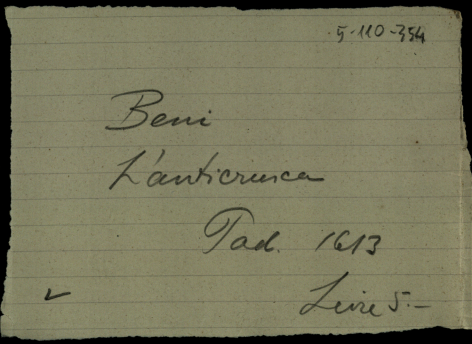 5-110-354
Beni
L'anticrusca
Pad. 1613
Leire 5.-